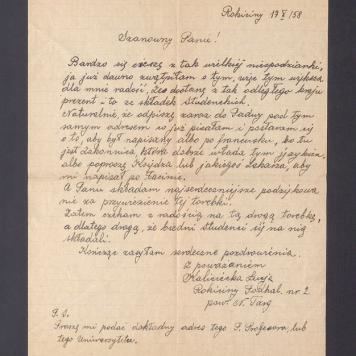 Rokiciny 19 V/58
Szanowny Panie!
Bardzo się cieszę z tak wielkiej niespodzianki,
ja już dawno zwątpiłam o tym, więc tym większa
dla mnie radość, że dostanę z tak odległego kraju
prezent - to ze składek studenckich.
Naturalnie, że odpiszę zaraz do Padwy pod tym
samym adresem co już pisałam i postaram się
o to, aby był napisany albo po francusku, bo tu
jest zakonnica, która dobrze włada tym językiem,
albo poproszę Księdza lub jakiegoś Lekarza, aby
mi napisał po łacinie.
A Panu składam najserdeczniejsze podziękowa
nie za przywiezienie tej torebki.
Zatem czekam z radością na tą drogą torebkę,
a dlatego drogą, że biedni studenci się na nią
składali.
Kończąc zasyłam serdeczne pozdrowienia.
Z poważaniem
Rokiciny Podhal. nr. 2
pow. N. Targ
Proszę mi podać dokładny adres tego P. Profesora, lub
tego Uniwersytetu.